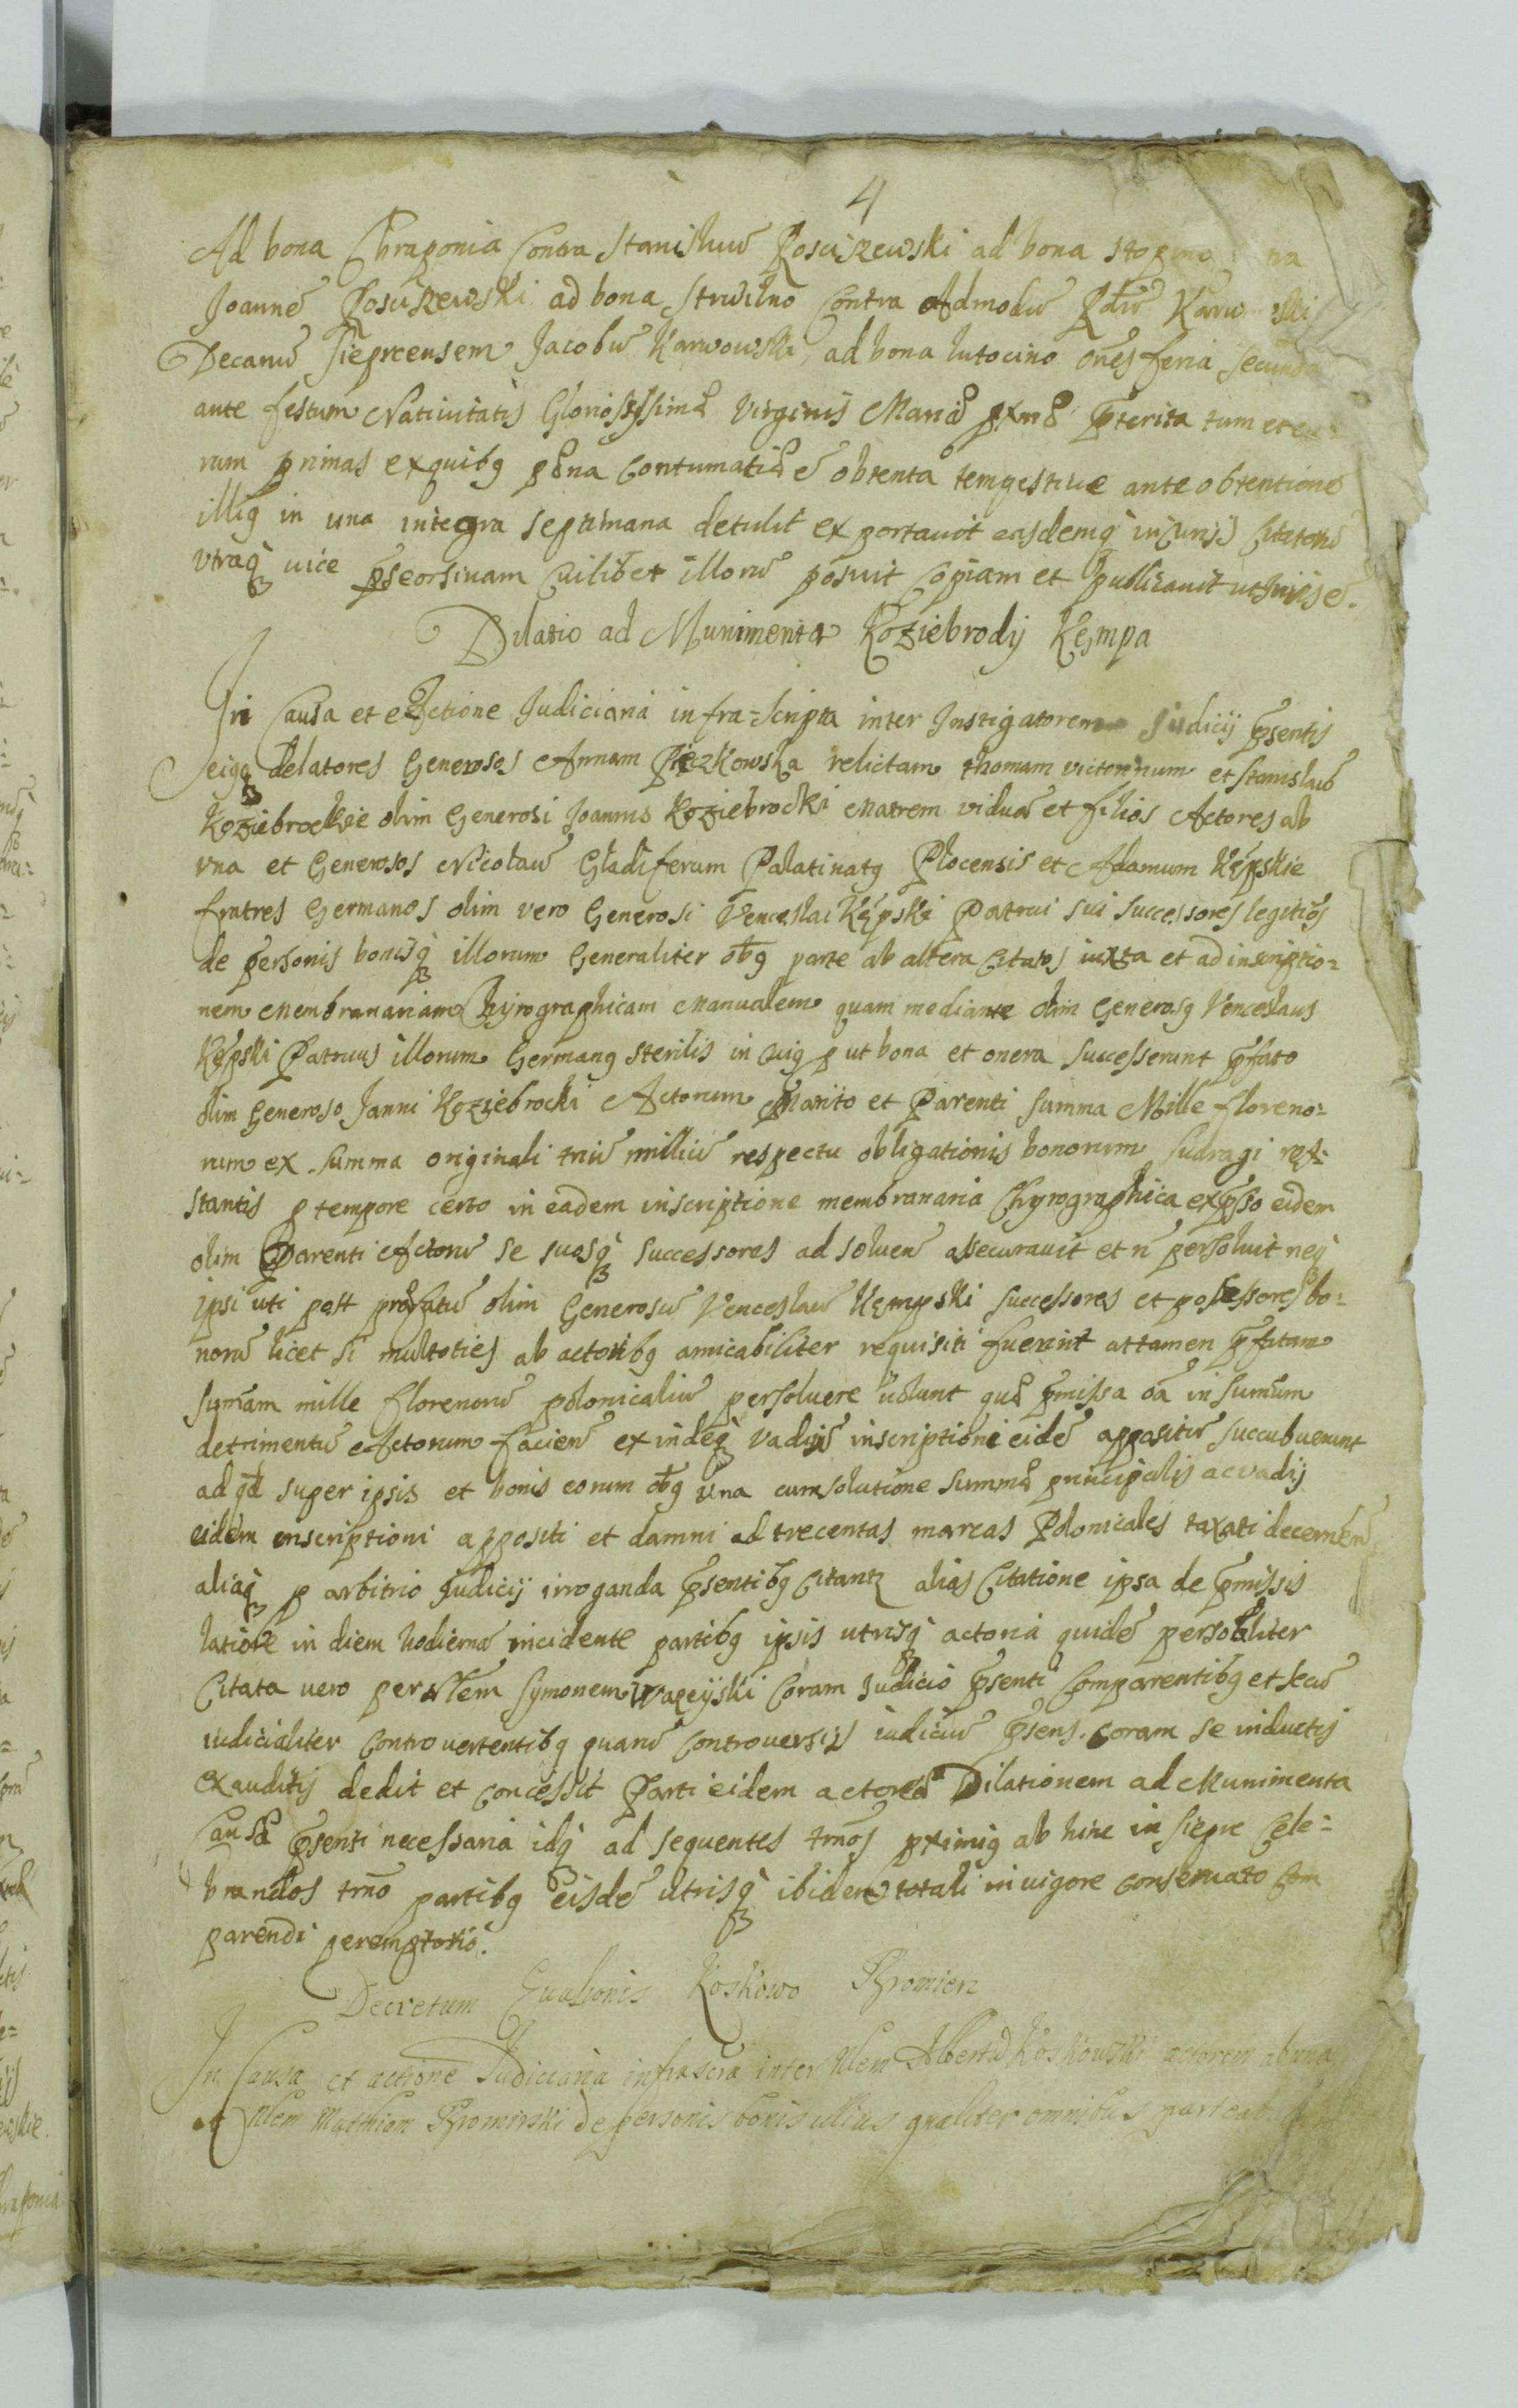 4
Ad bona Chraponia Contra Stanislaū Rosciszewski ad bona
Joannē Rosciszewski ad bona Struilno Contra Admodū Rdū
Decanū Sieprcensem Jacobū Karwowski, ad bona lutocino on̄es feria secunda
ante festum Natiuitatis Gloriosissimæ Virginis Mariæ pxmæ p̄terita tum et
rum primas exquibq pæna Contumatiæ ē obtenta tempestiue ante obtentionē
illiq in una integra septimana detulit exportauit easdemq̀ in Cursij Citatorū
vtraq̀ uice pseorsiuam Cuilibet illorū posuit Copiam et publicauit
Dilatio ad Munimenta Koziebrody Kempa
In Causa et Actione Judiciaria infra-Scripta inter Instigatorem Judicij p̄sentis
eiqq delatores Generosos Annam Pięczkowska relictam thomam victorinum et Stanislaū
Koziebrockie olim Generosi Joannis Koziebrocki Matrem viduā et filios Actores ab
vna et Generosos Nicolaū Gladiferum Palatinatq Plocensis et Adamum Kępskie
fratres Germanos olim vero Generosi Venceslai Kępski Patrui sui successores legitīos
de personis bonisq̀ illorum Generaliter ob̄q parte ab altera Citatos iuxta et ad inscriptio=
nem Membranariam Chyrographicam Manualem quam mediante olim Generosq Venceslaus
Kępski Patruus illorum Germanq sterilis in Cuiq put bona et onera successerunt p̄fato
olim Generoso Janni Koziebrocki Actorum Marito et Parenti summa Mille floreno=
rum ex summa originali triū milliū respectu obligationis bonorum Sudragi rest=
stantis p tempore certo in eadem inscriptione membranaria Chyrographica exp̄sso eidem
olim Parenti Actorū se suosq̀ successores ad soluen̄ assecurauit et n̄ persoluit neq̀
ipsi uti post præfatū olim Generosū Venceslaū Kempski successores et possessores bo=
norū licet si multoties ab actoribq amicabiliter requisiti fuerint attamen p̄fatam
summ̄am mille florenorū polonicaliū persoluere nolunt quæ p̄missa oā in summum
detrimentū Actorum facien̄ exindeq̀ vadijū inscriptioni eidē appositū succubuerunt
ad qd̄ super ipsis et bonis eorum ob̄q una cum solutione summæ principalis ac vadij
eidem inscriptioni appositi et damni ad trecentas marcas Polonicales taxati decernēn̄
aliaq̀ p arbitrio Judicij irroganda p̄sentibq Citantz alias Citatione ipsa de p̄missis
latiorē in diem hodiernā incidente partibq ipsis utrisq̀ actoria quidē personaliter
Citata uero per Nlem Symonem Wapeijski Coram Judicio p̄senti Comparentibq et secū
iudicialiter Controuertentibq quarū Controuersijs iudiciū p̄sens. Coram se inductis
Exauditis dedit et concessit Parti eidem actoreæ Dilationem ad Munimenta
Causæ p̄senti necessaria idq̀ ad sequentes trm̄os pximiq ab hinc in Siepre Cele=
brandos trm̄o partibq eisdē utrisq̀ ibidem totali in uigore conseruato Com
parendi peremptorió.
Decretum Euasionis Koskowo Rromierz
In Causa et actione Judiciaria infrascra inter Nlem Albertū Koskowski actorem ab una
et Nlem Mathiam Rromirski de personis bonis illius qualiter omnibus parte ab